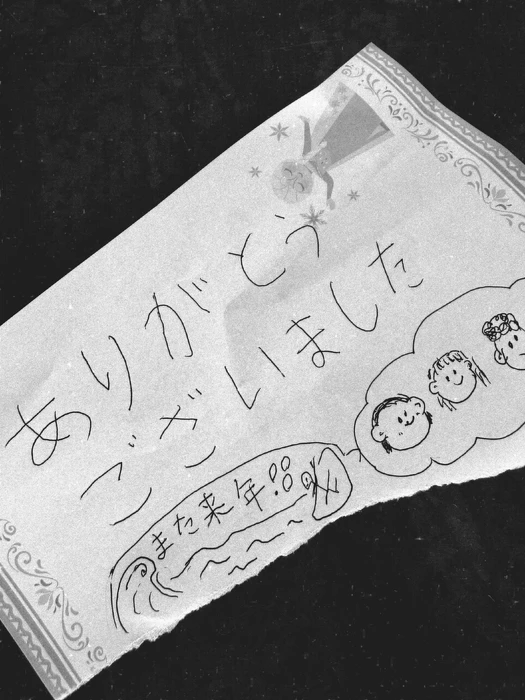 ありがとう
ございました
また来年!!